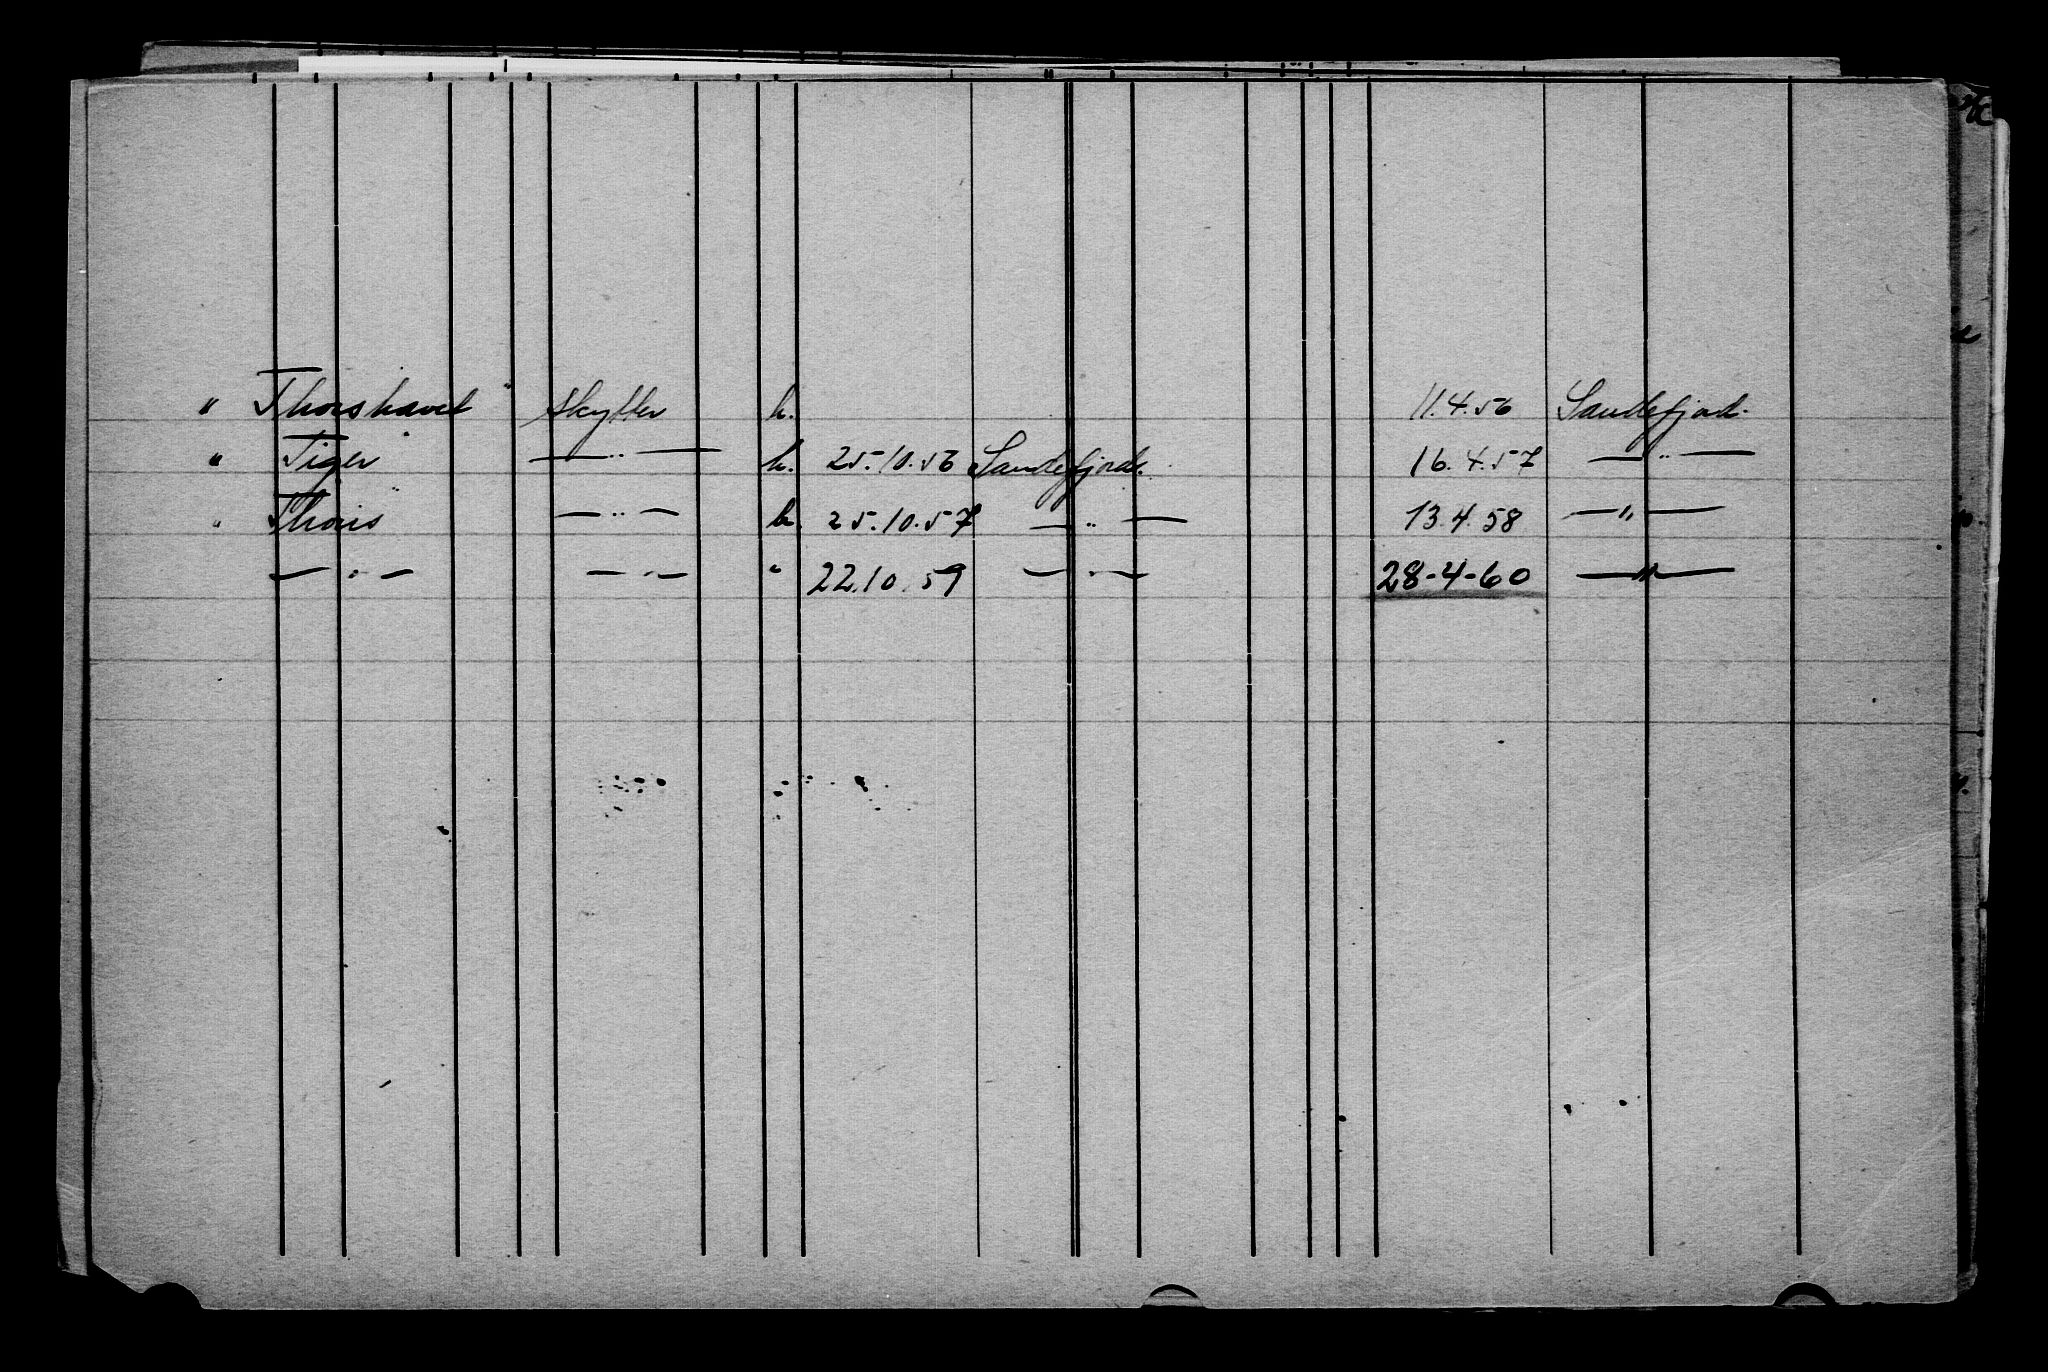 " Thorshavet" skytter h. 11.4.56 Sandefjord.
" Tiger —"— h. 25.10.56 Sandefjord. 16.4.57 —"—
" Thoris —"— h. 25.10.57 —"— 13.4.58 —"—
—"— —"— " 22.10.59 —"— 28-4-60 —"—